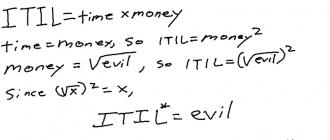 ITIL=time×money
time=money, so ITIL=money²
money = √evil, so ITIL=(√evil)²
Since (√x)²=x,
ITIL*=evil